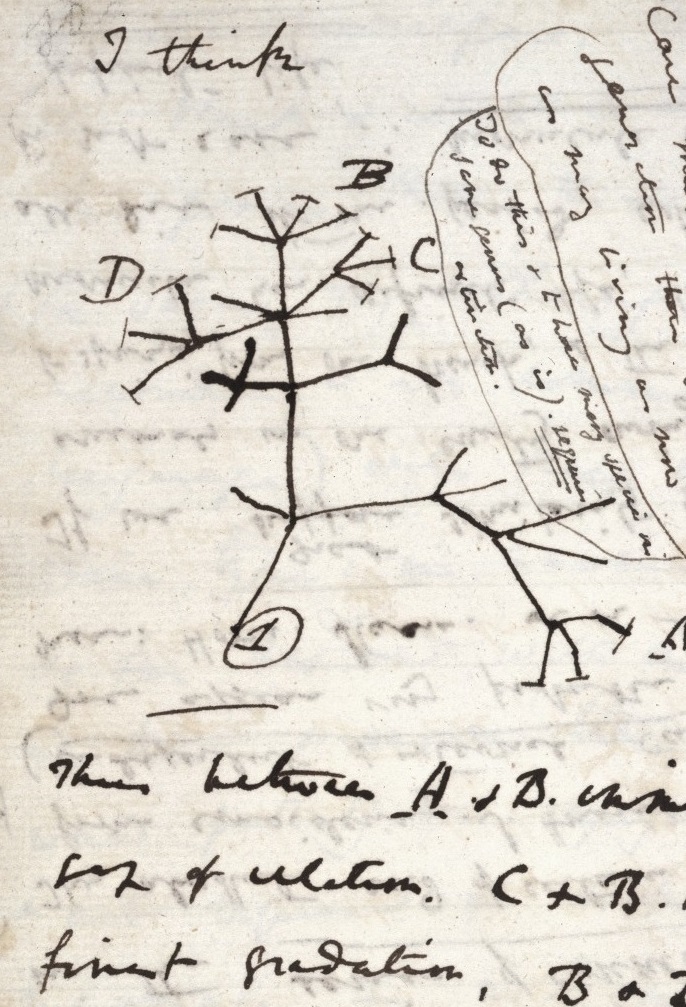 I think
B
C
D
1
A
Case
generation then
as many living as now
To do this & to have many species in
same genus (as is). requires
extinction.
Thus between A & B.
gap of relation. C & B.
finest gradation, B &